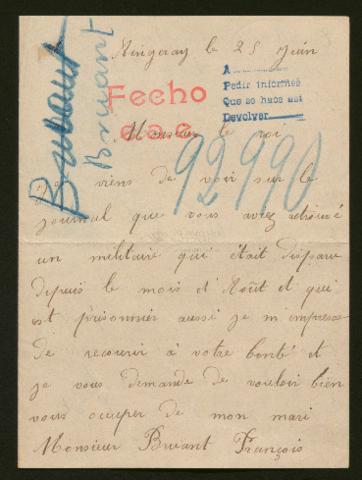 Bruant
Bruant
le 25 juin
Fecho
e.a.c.
A
Pedir informes
Que se hace así
Devolver
Monsieur le roi
92990
Je viens de voir sur le
journal que vous avez retrouvé
un militaire qui était disparu
depuis le mois d'Août et qui
est prisonnier aussi je m'empresse
de recourir à votre bonté et
je vous demande de vouloir bien
vous occuper de mon mari
Monsieur Bruant François